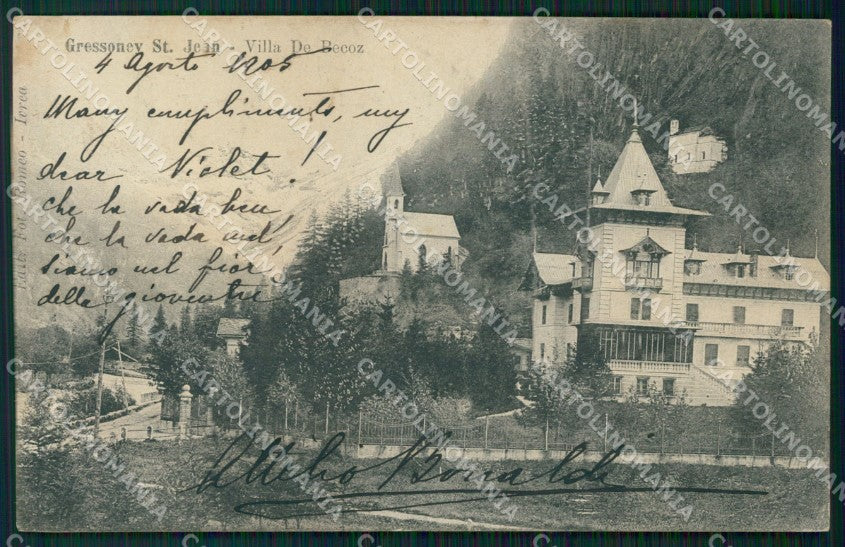 Gressoney St. Jean - Villa De Becoz
4 Agosto 1905
Many compliments, my
dear Violet!
che la vada ben
che la vada mal
siamo nel fior
della gioventre
Bonalde
Edit. Fot. Romeo - Ivrea
CARTOLINOMANIA.COM